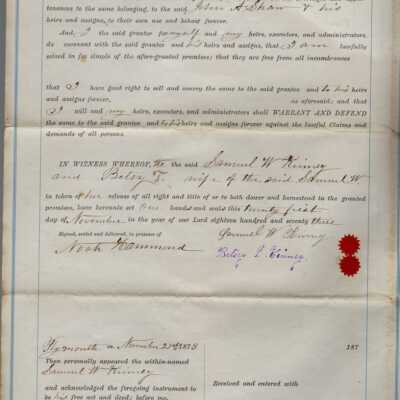 tenances to the same belonging, to the said John A. Shaw & his
heirs and assigns, to their own use and behoof forever.
And, I the said grantor for myself and my heirs, executors, and administrators,
do covenant with the said grantee and his heirs and assigns, that I am lawfully
seized in fee simple of the afore-granted premises; that they are free from all incumbrances
that I have good right to sell and convey the same to the said grantee and to his heirs
and assigns forever, as aforesaid; and that
I will and my heirs, executors, and administrators shall WARRANT AND DEFEND
the same to the said grantee and to his heirs and assigns forever against the lawful Claims and
demands of all persons.
IN WITNESS WHEREOF, We the said Samuel W Kinney
and Betsy F. wife of the said Samuel W.
in token of her release of all right and title of or to both dower and homestead in the granted
premises, have hereunto set our hands and seals this twenty first
day of November in the year of our Lord eighteen hundred and seventy three
Signed, sealed and delivered, in presence of
Samuel W Kinney
Noah Hammond
Betsey F. Kinney
Plymouth ss November 21st 1873
187
Then personally appeared the within-named
Samuel W Kinney
and acknowledged the foregoing instrument to
Received and entered with
be his free act and deed; before me,